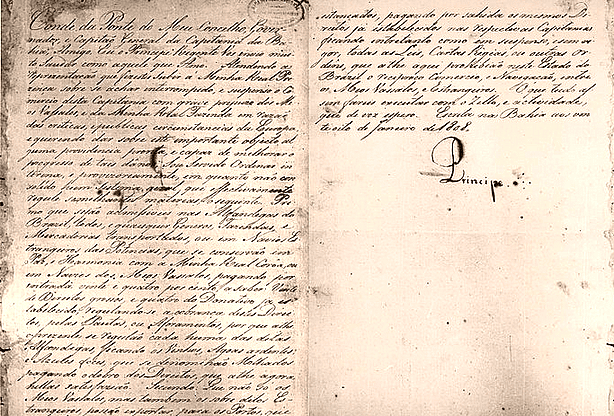 Conde da Ponte do Meu Conselho, Gover-
nador, e Capitaõ General da Capitania da Ba-
hia; Amigo. Eu o Principe Regente vos envio mui-
to Saudar como aquelle que Amo. Attendendo as
Representaçaõ que fizestes subir á Minha Real Pre-
zença sobre se achar interrompido, e suspenso o Co-
mercio desta Capitania com grave prejuizo dos Me-
os Vassallos, e da Minha Real Fazenda em razaõ
das criticas, e publicas circunstancias da Europa,
e querendo dar sobre este importante objecto al-
guma providencia prompta, e capaz de melhorar o
progresso de taes danos: Sou Servido Ordenar in-
terina, e provisoriamente, em quanto naõ con-
solido hum Systema geral, que effectivamente
regule semelhantes materias, o seguinte. Pri-
mo que sejaõ admissiveis nas Alfandegas do
Brazil, todos, e quaesquer Generos, Fazendas, e
Mercadorias transportadas, ou em Navios Es-
trangeiros das Potencias, que se conservaõ em
Paz, e Harmonia com a Minha Real Coroa, ou
em Navios dos Meos Vassallos, pagando por
entrada vinte e quatro por cento, a saber Vinte
de Direitos grossos, e quatro do Donativo ja es-
tabelecido, regulando-se a cobrança destes Direi-
tos, pelas Pautas, ou Aforamentos, porque até
o prezente se regulaõ cada huma das ditas
Alfandegas, ficando os Vinhos, Agoas ardentes,
e Azeites doces, que se denominaõ Molhados
pagando o dobro dos Direitos, que até agora
nellas satisfaziaõ. Secundo: Que naõ só os
Meos Vassallos, mas tambem os sobreditos Es-
trangeiros, possaõ exportar para os Portos, que
estancados, pagando por sahida os mesmos Di-
reitos já estabelecidos nas respectivas Capitanias
ficando entretanto como em suspenso, e sem vi-
gor, todas as Leis, Cartas Regias, ou outras Or-
dens, que até aqui prohibiaõ neste Estado do
Brazil o reciproco Comercio, e Navegaçaõ, entre
os Meos Vassallos, e Estrangeiros. O que tudo as-
sim fareis executar com o Zello, e actividade,
que de vós espero. Escrita na Bahia aos vin-
te oito de Janeiro de 1808.
Principe